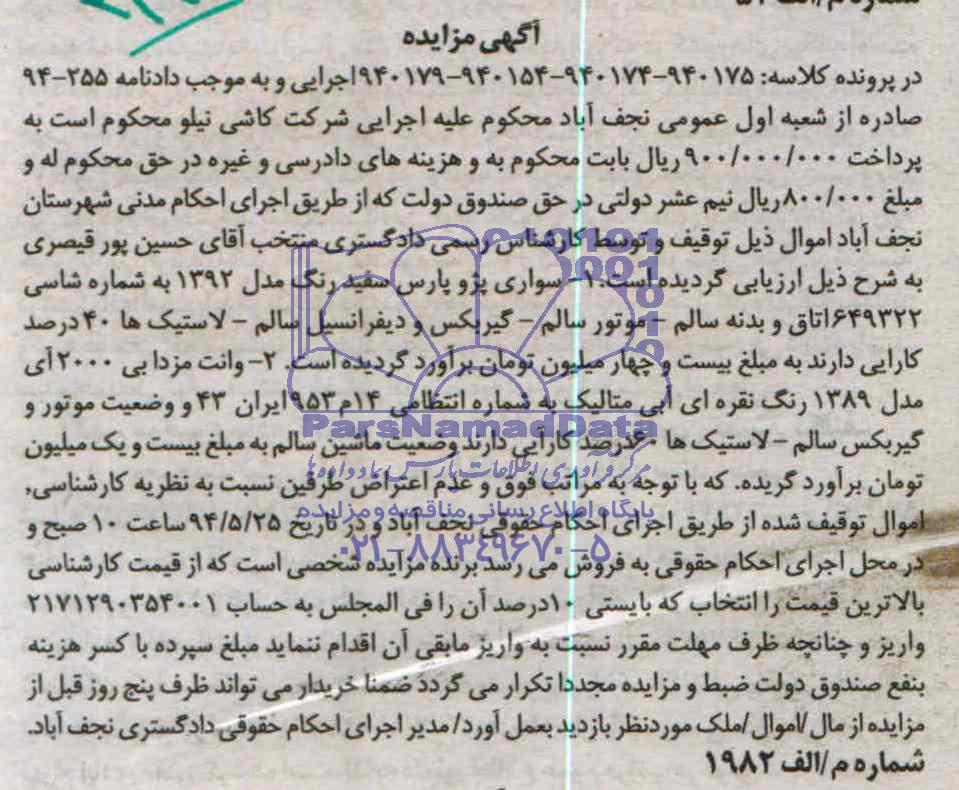 آگهی مزایده
در پرونده کلاسه: ۹۴۰۱۷۵-۹۴۰۱۷۴-۹۴۰۱۵۴-۹۴۰۱۷۹ اجرایی و به موجب دادنامه ۲۵۵-۹۴
صادره از شعبه اول عمومی نجف آباد محکوم علیه اجرایی شرکت کاشی نیلو محکوم است به
پرداخت ۹۰۰/۰۰۰/۰۰۰ ریال بابت محکوم به و هزینه های دادرسی و غیره در حق محکوم له و
مبلغ ۸۰۰/۰۰۰ ریال نیم عشر دولتی در حق صندوق دولت که از طریق اجرای احکام مدنی شهرستان
نجف آباد اموال ذیل توقیف و توسط کارشناس رسمی دادگستری منتخب آقای حسین پور قیصری
به شرح ذیل ارزیابی گردیده است. ۱- سواری پژو پارس سفید رنگ مدل ۱۳۹۲ به شماره شاسی
۶۴۹۳۲۲ اتاق و بدنه سالم - موتور سالم - گیربکس و دیفرانسیل سالم - لاستیک ها ۴۰ درصد
کارایی دارند به مبلغ بیست و چهار میلیون تومان برآورد گردیده است. ۲- وانت مزدا یی ۲۰۰۰ آی
مدل ۱۳۸۹ رنگ نقره ای آبی متالیک به شماره انتظامی ۱۴م۹۵۳ ایران ۴۳ و وضعیت موتور و
گیربکس سالم - لاستیک ها ۶۰ درصد کارآیی دارند وضعیت ماشین سالم به مبلغ بیست و یک میلیون
تومان برآورد گریده. که با توجه به مراتب فوق و عدم اعتراض طرفین نسبت به نظریه کارشناسی,
اموال توقیف شده از طریق اجرای احکام حقوقی نجف آباد و در تاریخ ۹۴/۵/۲۵ ساعت ۱۰ صبح و
در محل اجرای احکام حقوقی به فروش می رسد برنده مزایده شخصی است که از قیمت کارشناسی
بالاترین قیمت را انتخاب که بایستی ۱۰درصد آن را فی المجلس به حساب ۲۱۷۱۲۹۰۳۵۴۰۰۱
واریز و چنانچه ظرف مهلت مقرر نسبت به واریز مابقی آن اقدام ننماید مبلغ سپرده با کسر هزینه
بنفع صندوق دولت ضبط و مزایده مجددا تکرار می گردد ضمنا خریدار می تواند ظرف پنج روز قبل از
مزایده از مال/اموال/ملک موردنظر بازدید بعمل آورد/ مدیر اجرای احکام حقوقی دادگستری نجف آباد.
شماره م/الف ۱۹۸۲
ParsNamadData
مرکز فرآوری اطلاعات پارس نماد داده ها
پایگاه اطلاع رسانی مناقصه و مزایده
۰۲۱-۸۸۳۴۹۶۷۰-۵